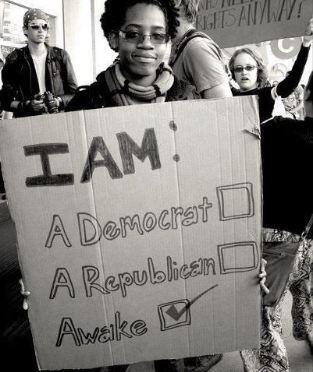 RIGHTS ANYWAY?
I AM:
A Democrat
A Republican
Awake